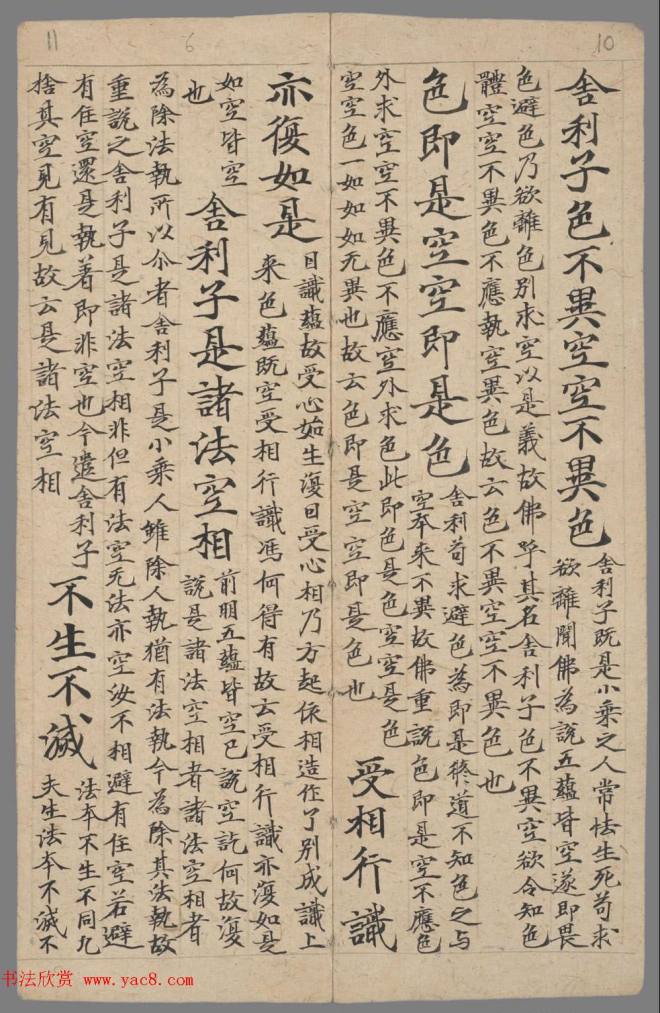 11
6
10
舍利子色不異空空不異色
舍利子既是小乘之人常怯生死苟求
欲離聞佛為說五蘊皆空遂即畏
色避色乃欲離色別求空以是義故佛呼其名舍利子色不異空欲令知色
體空空不異色不應執空異色故云色不異空空不異色也
色即是空空即是色
舍利苟求避色為即是修道不知色之与
空本来不異故佛重說色即是空不應色
外求空空不異色不應空外求色此即色是色空空是色
空空色一如如如无異也故云色即是空空即是色也
受相行識
亦復如是
日識蘊故受心始生復日受心相乃方起依相造作了別成識上
来色蘊既空受相行識馮何得有故云受相行識亦復如是
如空皆空
也
舍利子是諸法空相
前明五蘊皆空已說空訖何故復
說是諸法空相者諸法空相者
為除法執所以尒者舍利子是小乘人雖除人執猶有法執今為除其法執故
重說之舍利子是諸法空相非但有法空无法亦空汝不相避有住空若避
有住空還是執著即非空也今遣舍利子
捨其空見有見故云是諸法空相
不生不滅
法本不生不同凡
夫生法本不滅不
书法欣赏 www.yac8.com